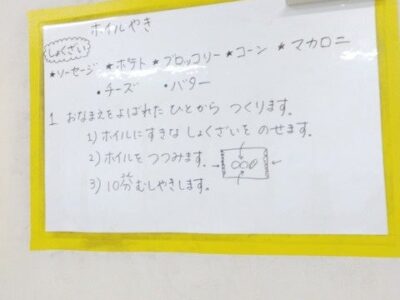 ホイルやき
しょくざい
★ソーセージ ★ポテト ★ブロッコリー ★コーン ★マカロニ
・チーズ ・バター
1. おなまえをよばれた ひとから つくります。
1) ホイルにすきな しょくざいを のせます。
2) ホイルを つつみます。
3) 10分むしやきします。